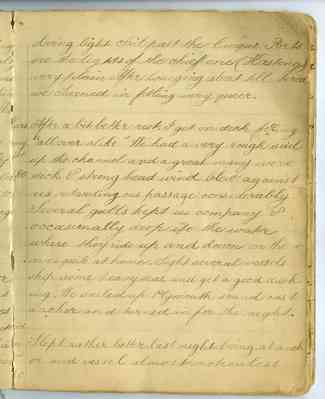 diving light Civil past the Cinque Ports
are the lights of the chief one (Hastings)
very plain After lounging about till
we turned in feeling very queer.
After a bit better rest I got on deck feeling
all over alike We had a very rough sail
up the channel and a great many were
sick A strong head wind blew against
us retarding our passage considerably
Several gulls kept us company &
occasionally drop into the water
where they ride up and down on the
waves quite at home. Sight several vessels
ship some heavy seas and get a good duck
ing. We sailed up Plymouth sound cast
anchor and turned in for the night.
Slept rather better last night being at anch
or and vessel almost motionless